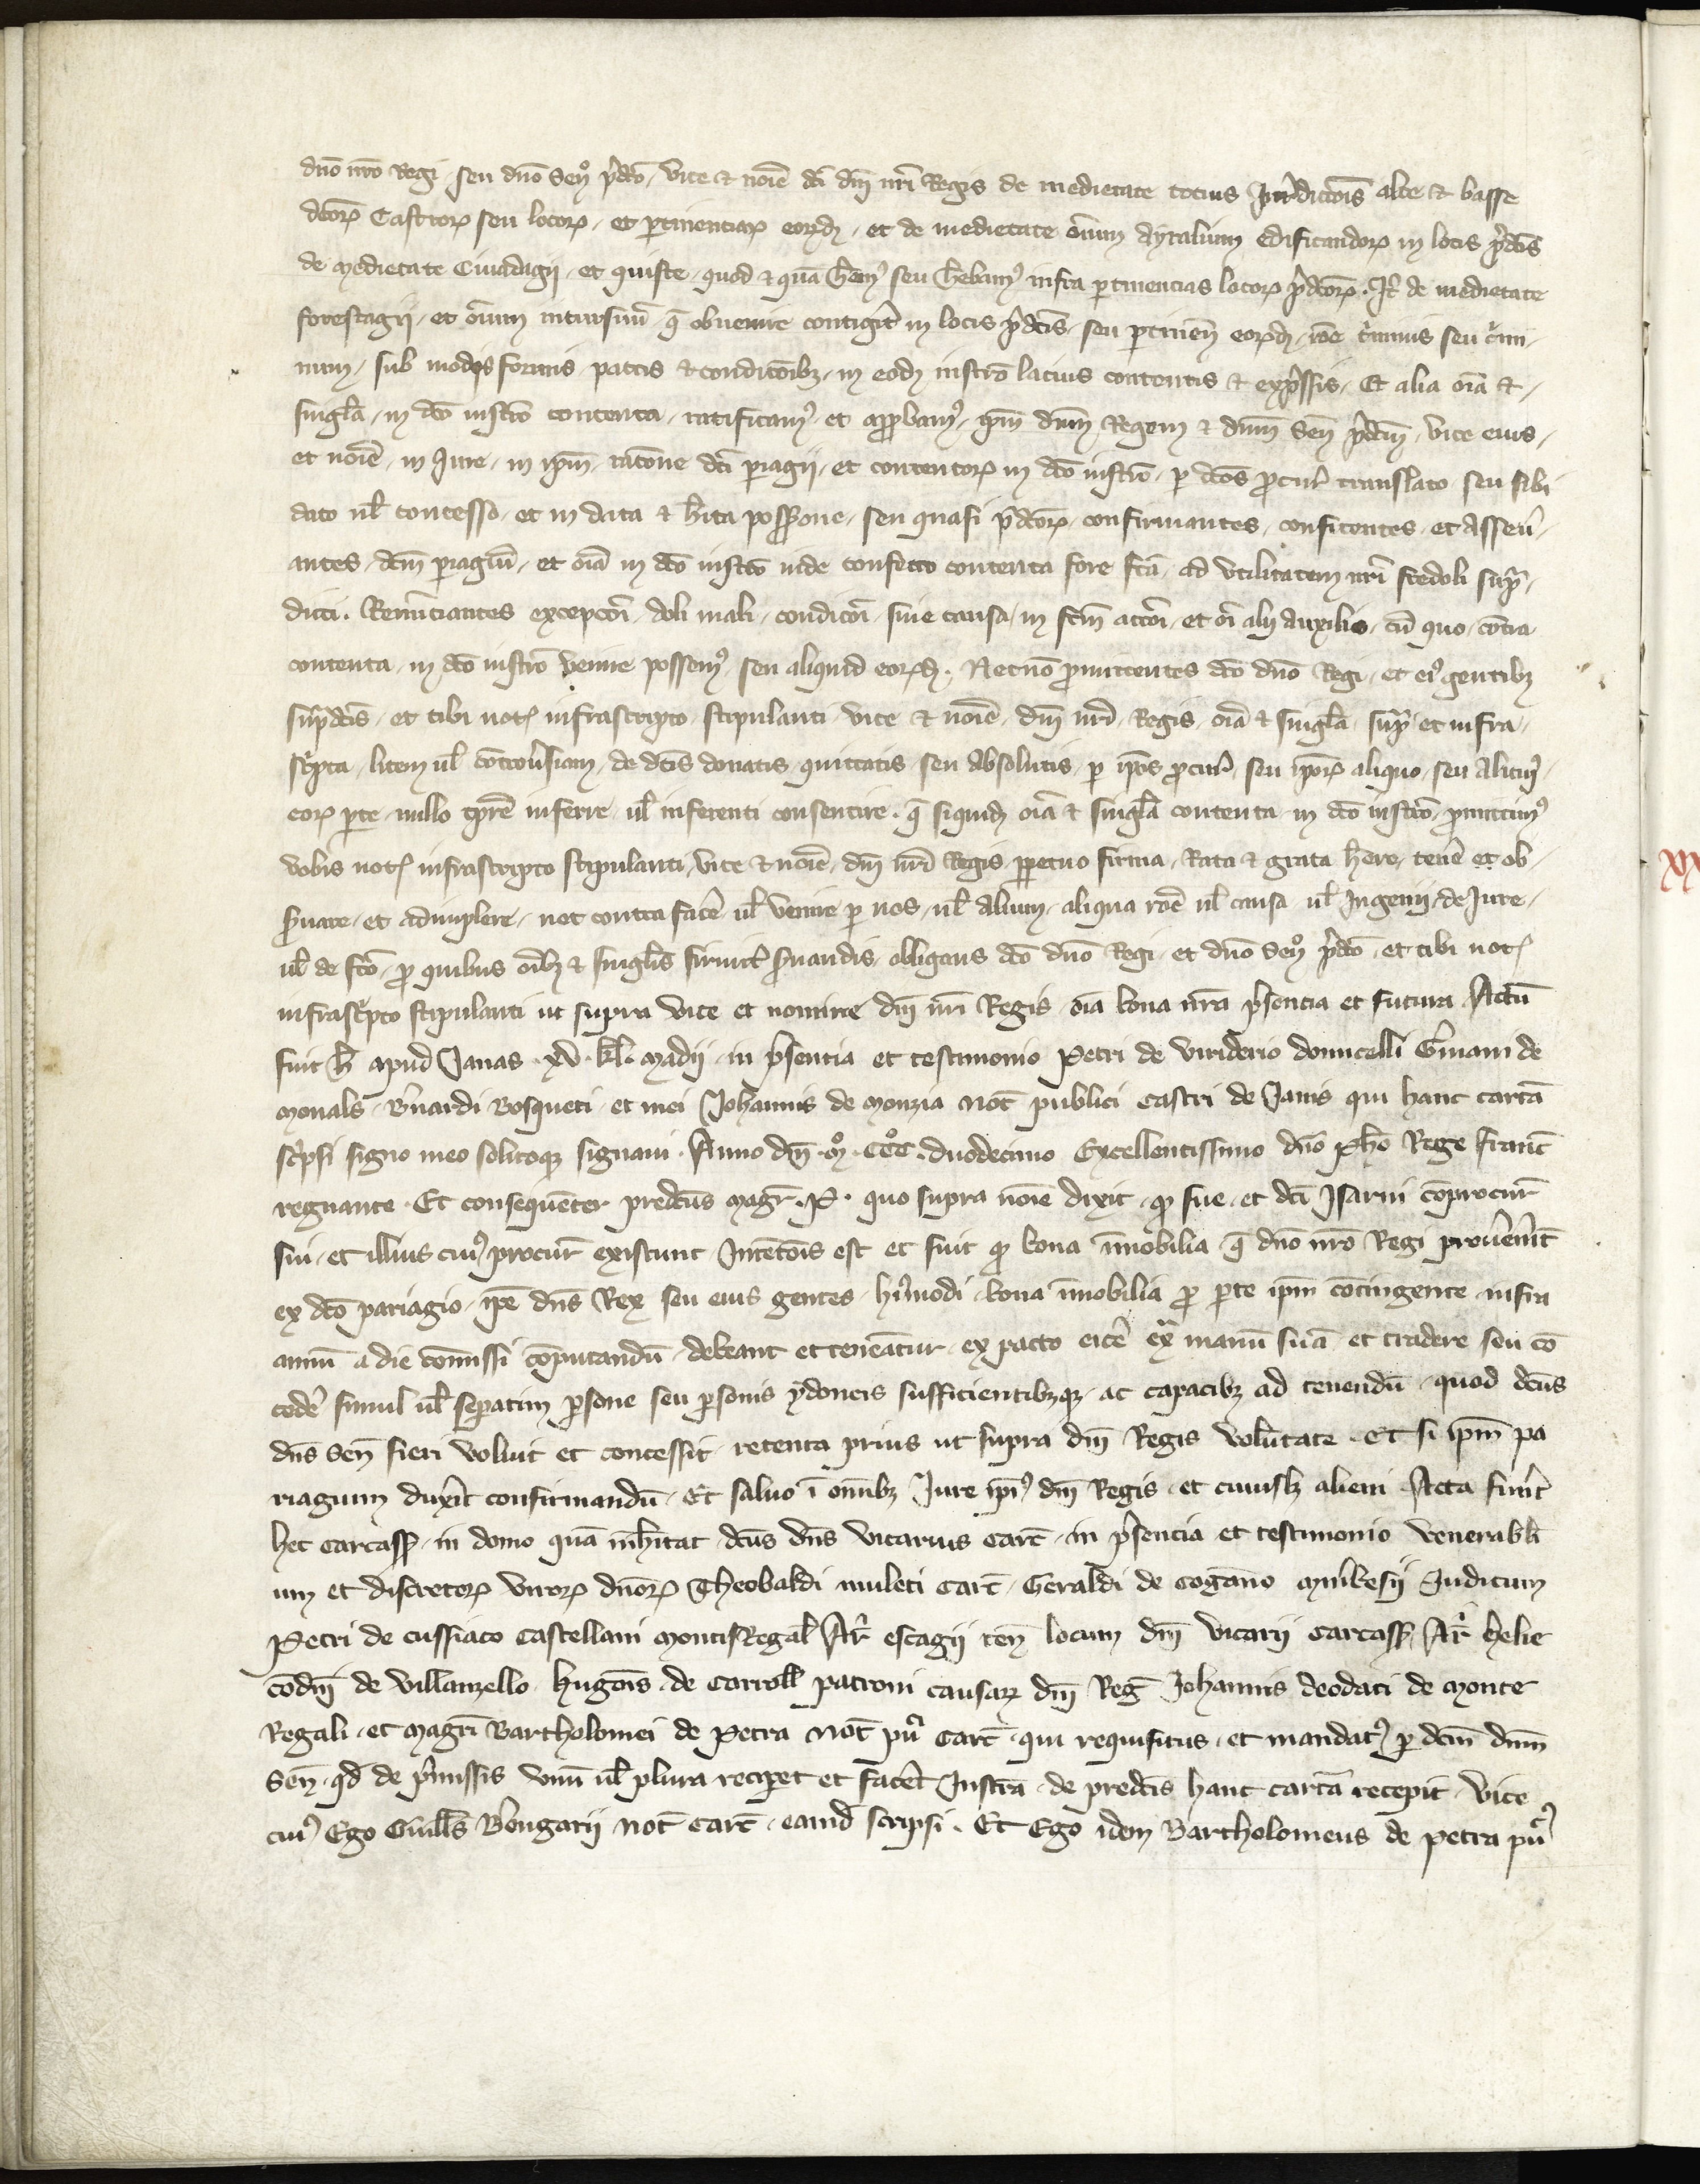 dno nro Regi seu dno Sen̄ p̄dco vice et noie dci dni nri Regis de medietate totius Jurisdictōis alte et basse
dcorꝝ Castrorꝝ seu locorꝝ et ptinentiarꝝ eorūdꝫ et de medietate oīum ayralium edificandorꝝ in locis p̄dcis
de medietate Civadagii et quiste quod et quā hēmꝰ seu hēbamꝰ infra ptinencias locorꝝ p̄dcorꝝ Itē de medietate
forestagii et oīum incursuū q̄ obuenire contigerit in locis p̄dcis seu ptinen̄ eorūdꝫ rōe c̄minis seu c̄mi
num sub modis formis pactis et condicōibꝫ in eodꝫ instrō lacius contentis et exp̄ssis Et alia oīa et
singl̄a in dco instrō contenta ratificamꝰ et approbamꝰ ipm dnm Regem et dnm Sen̄ p̄dcm vice eius
et noie in Jure in ipm racōne dci pariagii et contentorꝝ in dco instrō p dcos procur̄ translato seu sibi
dato ul̄ concesso et in data et hīta possessione seu quasi p̄dcorꝝ confirmantes confitentes et asseu̾
antes dcm pariagiū et oīa in dco instrō inde confecto contenta fore fcā ad utilitatem nri sup̄
dicti Renunciantes excepcōi doli mali condicōi sine causa in fcm accōi et oī alii auxilio cū quo cōtra
contenta in dco instrō venire possemꝰ seu aliquid eorūdꝫ Necnō promittentes dco dno Regi et eiꝰ gentibꝫ
sup̄dcis et tibi not̄ infrascripto stipulanti vice et noie dni nri Regis oīa et singl̄a sup̄ et infra
sc̄pta litem ul̄ cōtrouersiam de dcis donatis quittatis seu absolutis p ip̄os procur̄ seu ip̄orꝝ aliquo seu alicuiꝰ
eorꝝ pte nullo tp̄re inferre ul̄ inferenti consentire q̄ siquidꝫ oīa et singl̄a contenta in dco instrō promittimꝰ
vobis not̄ infrascripto stipulanti vice et noie dni nri Regis ppetuo firma Rata et grata hēre tenēr et ob
s̄uare et adimplere nec contra facēr ul̄ venire p nos ul̄ alium aliqua rōe ul̄ causa ul̄ Ingenii de Jure
ul̄ de fcō pro quibus oībꝫ et singl̄is firmit̄ s̄uandis obligans dco dno Regi et dno Sen̄ p̄dco et tibi not̄
infrasc̄pto stipulanti ut supra vice et nomine dni nri Regis oīa bona nra p̄sencia et futura Actū
fuit h̄ apud Canas xv kl̄ madii in p̄sentia et testimonio Petri de viriderio domicelli G̾mani de
monals B̾nardi Bosqueti et mei Johannis de monzia not̄ publici castri de Canis qui hanc cartā
sc̄psi signo meo solitoqꝫ signaui Anno dni mͦ cccͦ duodecimo Excellentissimo dno ph̄o Rege Franc̄
regnante Et consequent̄er predc̄us magr̄ P quo supra noie dixit qꝫ sue et dci Isarni cōprocur̄
sui et illius cuiꝰ procur̄ existunt Intētōis est et fuit qꝫ bona īmobilia q̄ dno nro Regi prouēnīt
ex dco pariagio ipe dns Rex seu eius gentes hꝰmodi bona īmobilia pro pte ipm cōtingente infra
annū a die cōmissi cōputandū debeant et teneātur ex pacto eicēr ex̄ manū suā et tradere seu cō
cedēr simul ul̄ sepatim psone seu psonis ydoneis sufficientibꝫqꝫ ac capacibꝫ ad tenendū quod dcūs
dns Sen̄ fieri voluit et concessit retenta prius ut supra dni Regis volūtate Et si ipm pa
riagium duxīt confirmandū Et saluo ī omībꝫ Jure ipīꝰ dni Regis et cuiuslꝫ alieni Acta fuīt
hec Carcass̄ in domo quā īhītat dcūs dns vicarius Carc̄ in p̄sencia et testimonio venerabili
um et discretorꝝ virorꝝ dnorꝝ Theobaldi muleti Carc̄ Geraldi de cogāno Mīb̾esii Judicum
Petri de cussiaco castellani montisRegal̄ Ar̄ escagii ten̄ locum dni vicarii Carcass̄ Ar̄ helie
cōdni de villanzello hugōis de Carroll̄ patroni causarꝝ dni Reḡ Johannis deodati de monte
Regali et magri Bartholomei de Petra not̄ pū Carc̄ qui requisitus et mandatꝰ p dcm dnm
Sen̄ qd̄ de p̄missis unū ul̄ plura recipet et facēt Instra de predcis hanc cartā recepit vice
cuiꝰ Ego Guill̄s B̾engarii not̄ Carc̄ eand̄ scripsi Et Ego idem Bartholomeus de petra pū